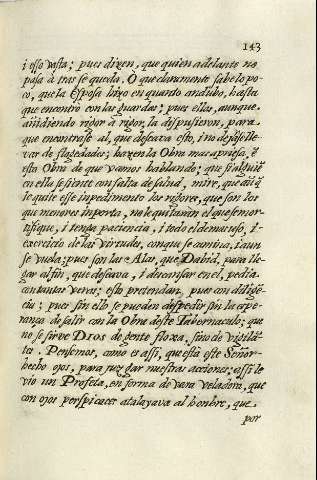 143
i esso basta; pues dizen, que quien adelante no
pasa à tras se queda. O que claramente sabelo po-
co, que la Esposa hizo en quanto andubo, hasta
que encontrò con las guardas; pues ellos, aunque
añidiendo rigòr à rigòr, la dispusieron, para
que encontrase al, que deseava esto, i no dejàse lle-
var de flogedades; hazen la Obra mas apriesa, q̃
esta Obra de que vamos hablando; que si alguiẽ
en ella se siente con falta de salud, mire, que aũq̃
le quite esse inpedimento los rigores, que son los
que menores inporta, no le quitaràn el que se mor-
tifique, i tenga paciencia, i todo el demas uso, i
exercicio de las virtudes, con que se camina, i aun
se vuela; pues son las Alas, que Dabid, para lle-
gar al fin, que deseava, i descansar en el, pedia
con tantas veras; esto pretendan, pues con diligẽ-
cia; pues sin ello se pueden despedir sin la espe-
rança de salir con la Obra deste Tabernaculo; que
no se sirve DIOS de gente floxa, sino de vigilã-
te. Pensemos, como es assi, que està este Señor
hecho ojos, para juzgar nuestras acciones; assi le
viò un Profeta, en forma de vara veladora, que
con ojos perspicaces atalayava al honbre, que
por